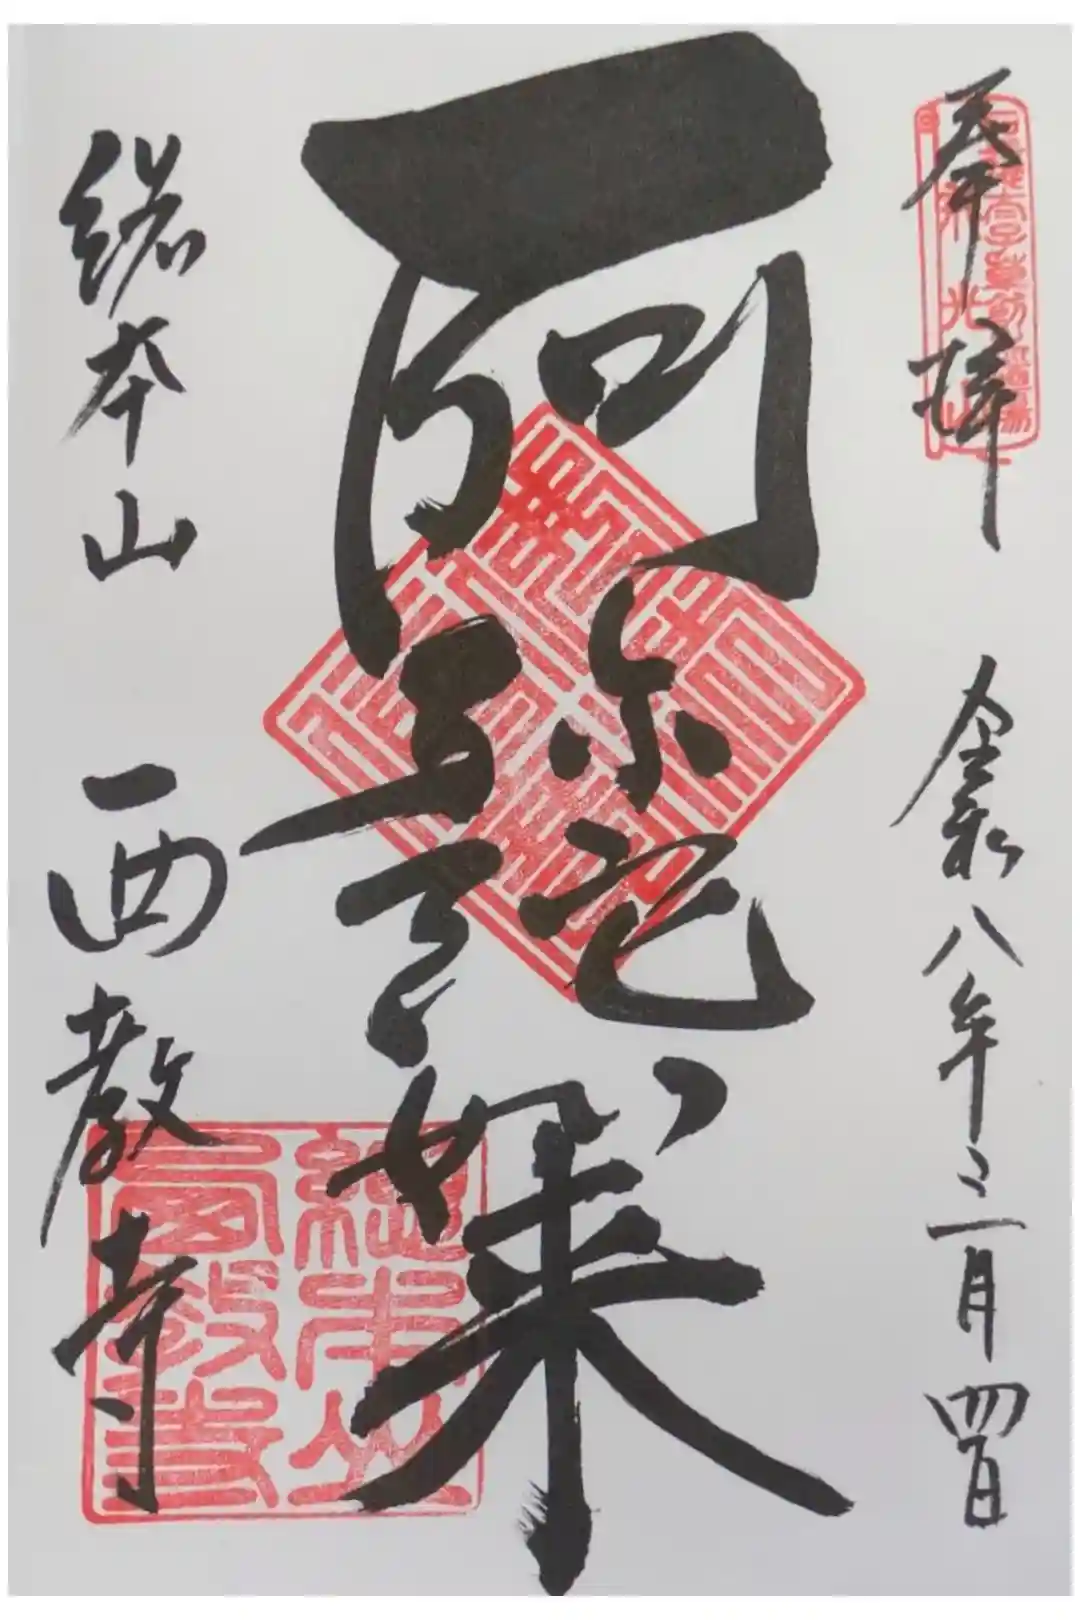 奉拝 令和八年三月四日
阿弥陀如来
総本山 西教寺
總本山
西教寺